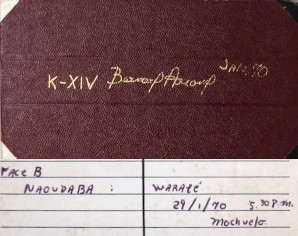 K-XIV Bernard Arcand JAN. 70
FACE B
NAOUDABA : WARAPÉ
29/1/70 5.30 P.M.
Mochuelo